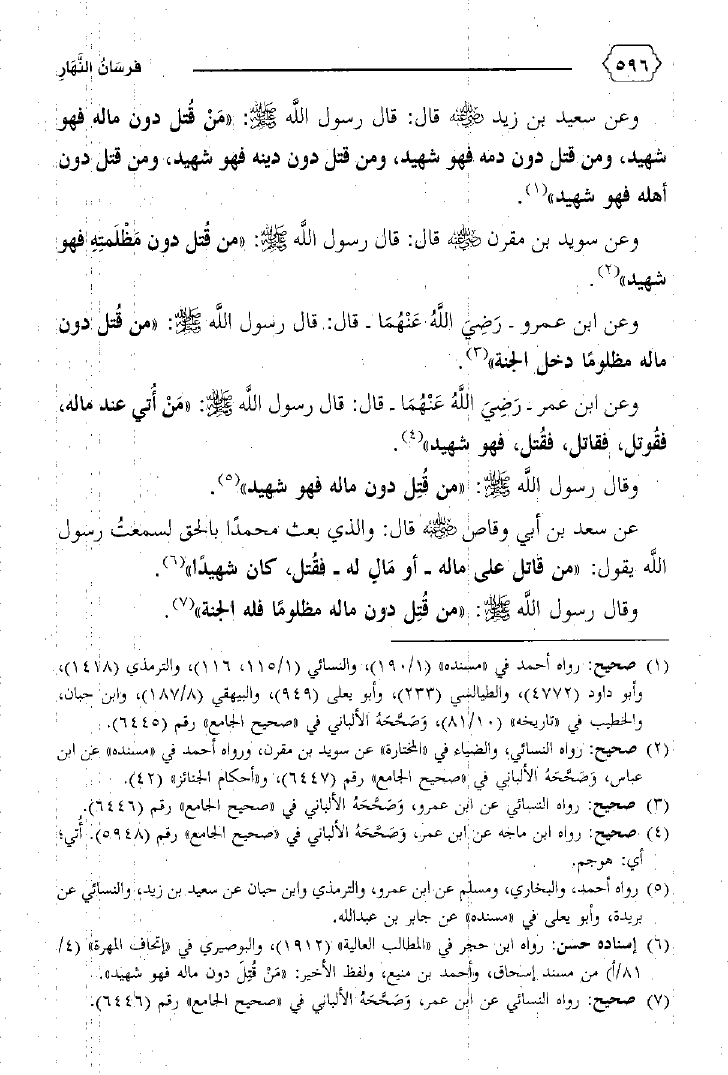 ٥٩٦ فرسَانُ النَّهَارِ
وعن سعيد بن زيد رضي الله عنه قال: قال رسول اللَّه ﷺ: «مَنْ قُتل دون ماله فهو
شهيد، ومن قتل دون دمه فهو شهيد، ومن قتل دون دينه فهو شهيد، ومن قتل دون
أهله فهو شهيد»(١).
وعن سويد بن مقرن رضي الله عنه قال: قال رسول اللَّه ﷺ: «من قُتل دون مَظْلَمتِهِ فهو
شهيد»(٢).
وعن ابن عمرو ـ رَضِيَ اللَّهُ عَنْهُمَا ـ قال: قال رسول اللَّه ﷺ: «من قُتل دون
ماله مظلومًا دخل الجنة»(٣).
وعن ابن عمر ـ رَضِيَ اللَّهُ عَنْهُمَا ـ قال: قال رسول اللَّه ﷺ: «مَنْ أُتي عند ماله،
فقُوتل، فقاتل، فقُتل، فهو شهيد»(٤).
وقال رسول اللَّه ﷺ: «من قُتِل دون ماله فهو شهيد»(٥).
عن سعد بن أبي وقاص رضي الله عنه قال: والذي بعث محمدًا بالحق لسمعتُ رسول
اللَّه يقول: «من قاتل على ماله ـ أو مَالٍ له ـ فقُتل، كان شهيدًا»(٦).
وقال رسول اللَّه ﷺ: «من قُتِل دون ماله مظلومًا فله الجنة»(٧).
(١) صحيح: رواه أحمد في «مسنده» (١٩٠/١)، والنسائي (١١٥/١، ١١٦)، والترمذي (١٤١٨)،
وأبو داود (٤٧٧٢)، والطيالسي (٢٣٣)، وأبو يعلى (٩٤٩)، والبيهقي (١٨٧/٨)، وابن حبان،
والخطيب في «تاريخه» (٨١/١٠)، وَصَحَّحَهُ الألباني في «صحيح الجامع» رقم (٦٤٤٥).
(٢) صحيح: رواه النسائي، والضياء في «المختارة» عن سويد بن مقرن، ورواه أحمد في «مسنده» عن ابن
عباس، وَصَحَّحَهُ الألباني في «صحيح الجامع» رقم (٦٤٤٧)، و«أحكام الجنائز» (٤٢).
(٣) صحيح: رواه النسائي عن ابن عمرو، وَصَحَّحَهُ الألباني في «صحيح الجامع» رقم (٦٤٤٦).
(٤) صحيح: رواه ابن ماجه عن ابن عمر، وَصَحَّحَهُ الألباني في «صحيح الجامع» رقم (٥٩٤٨). أُتي؛
أي: هوجم.
(٥) رواه أحمد، والبخاري، ومسلم عن ابن عمرو، والترمذي وابن حبان عن سعيد بن زيد، والنسائي عن
بريدة، وأبو يعلى في «مسنده» عن جابر بن عبدالله.
(٦) إسناده حسن: رواه ابن حجر في «المطالب العالية» (١٩١٢)، والبوصيري في «إتحاف المهرة» (٤/
٨١/أ) من مسند إسحاق، وأحمد بن منيع، ولفظ الأخير: «مَنْ قُتِلَ دون ماله فهو شهيد».
(٧) صحيح: رواه النسائي عن ابن عمر، وَصَحَّحَهُ الألباني في «صحيح الجامع» رقم (٦٤٤٦).